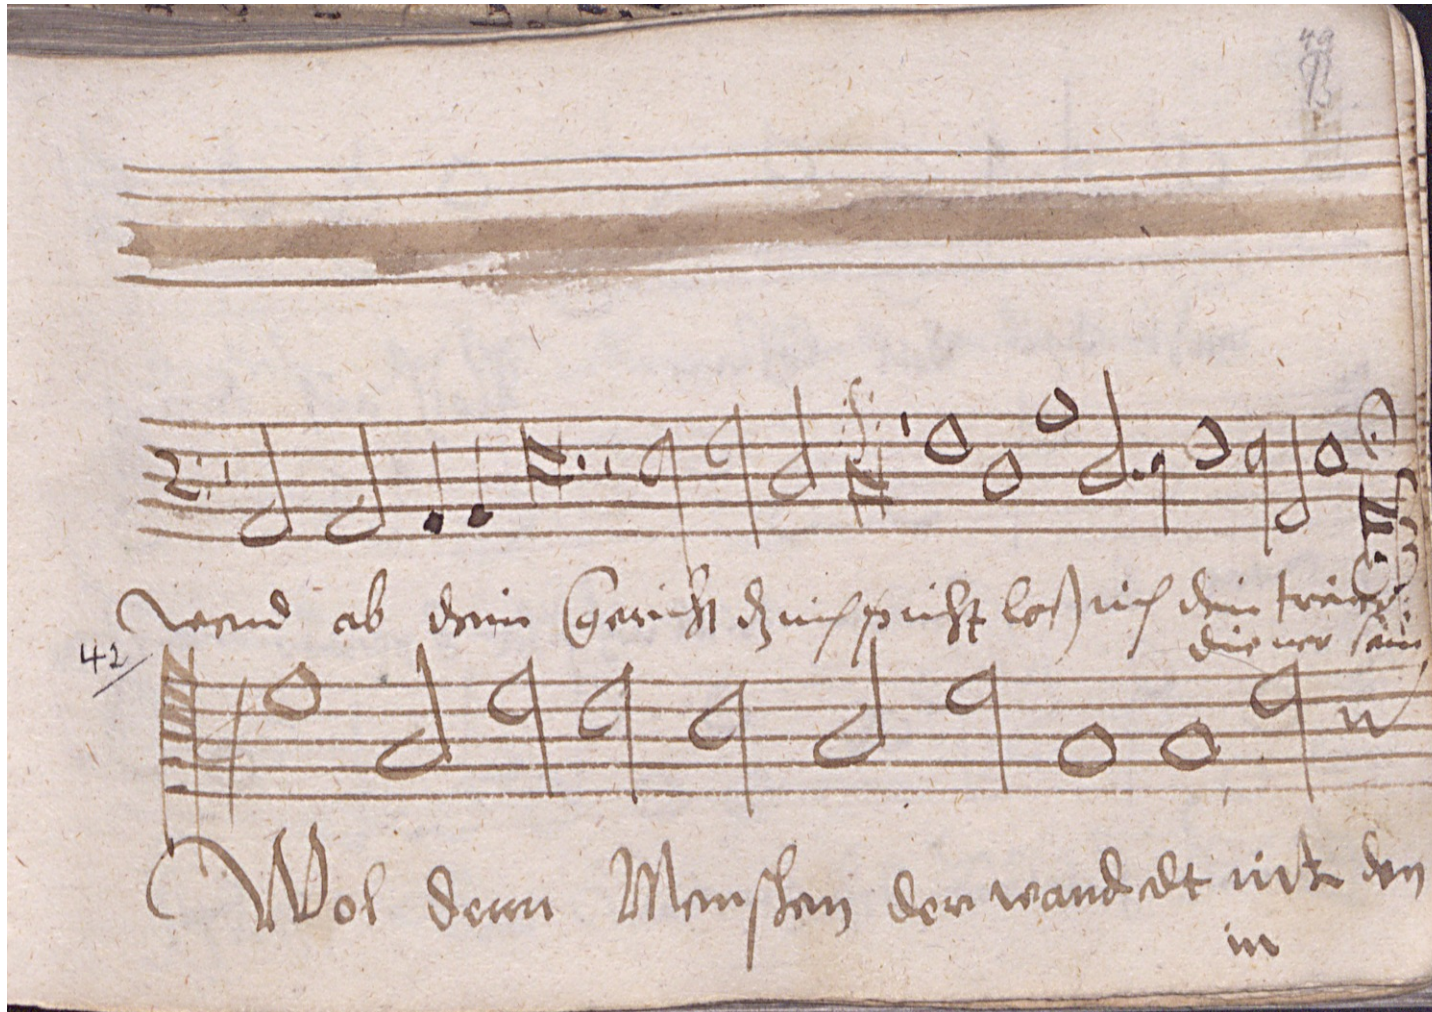 49
wend ab dein gericht dz ich nicht loß ich dein trewer
diener sein
42
Wol denn Menschen der wandelt nicht den
in